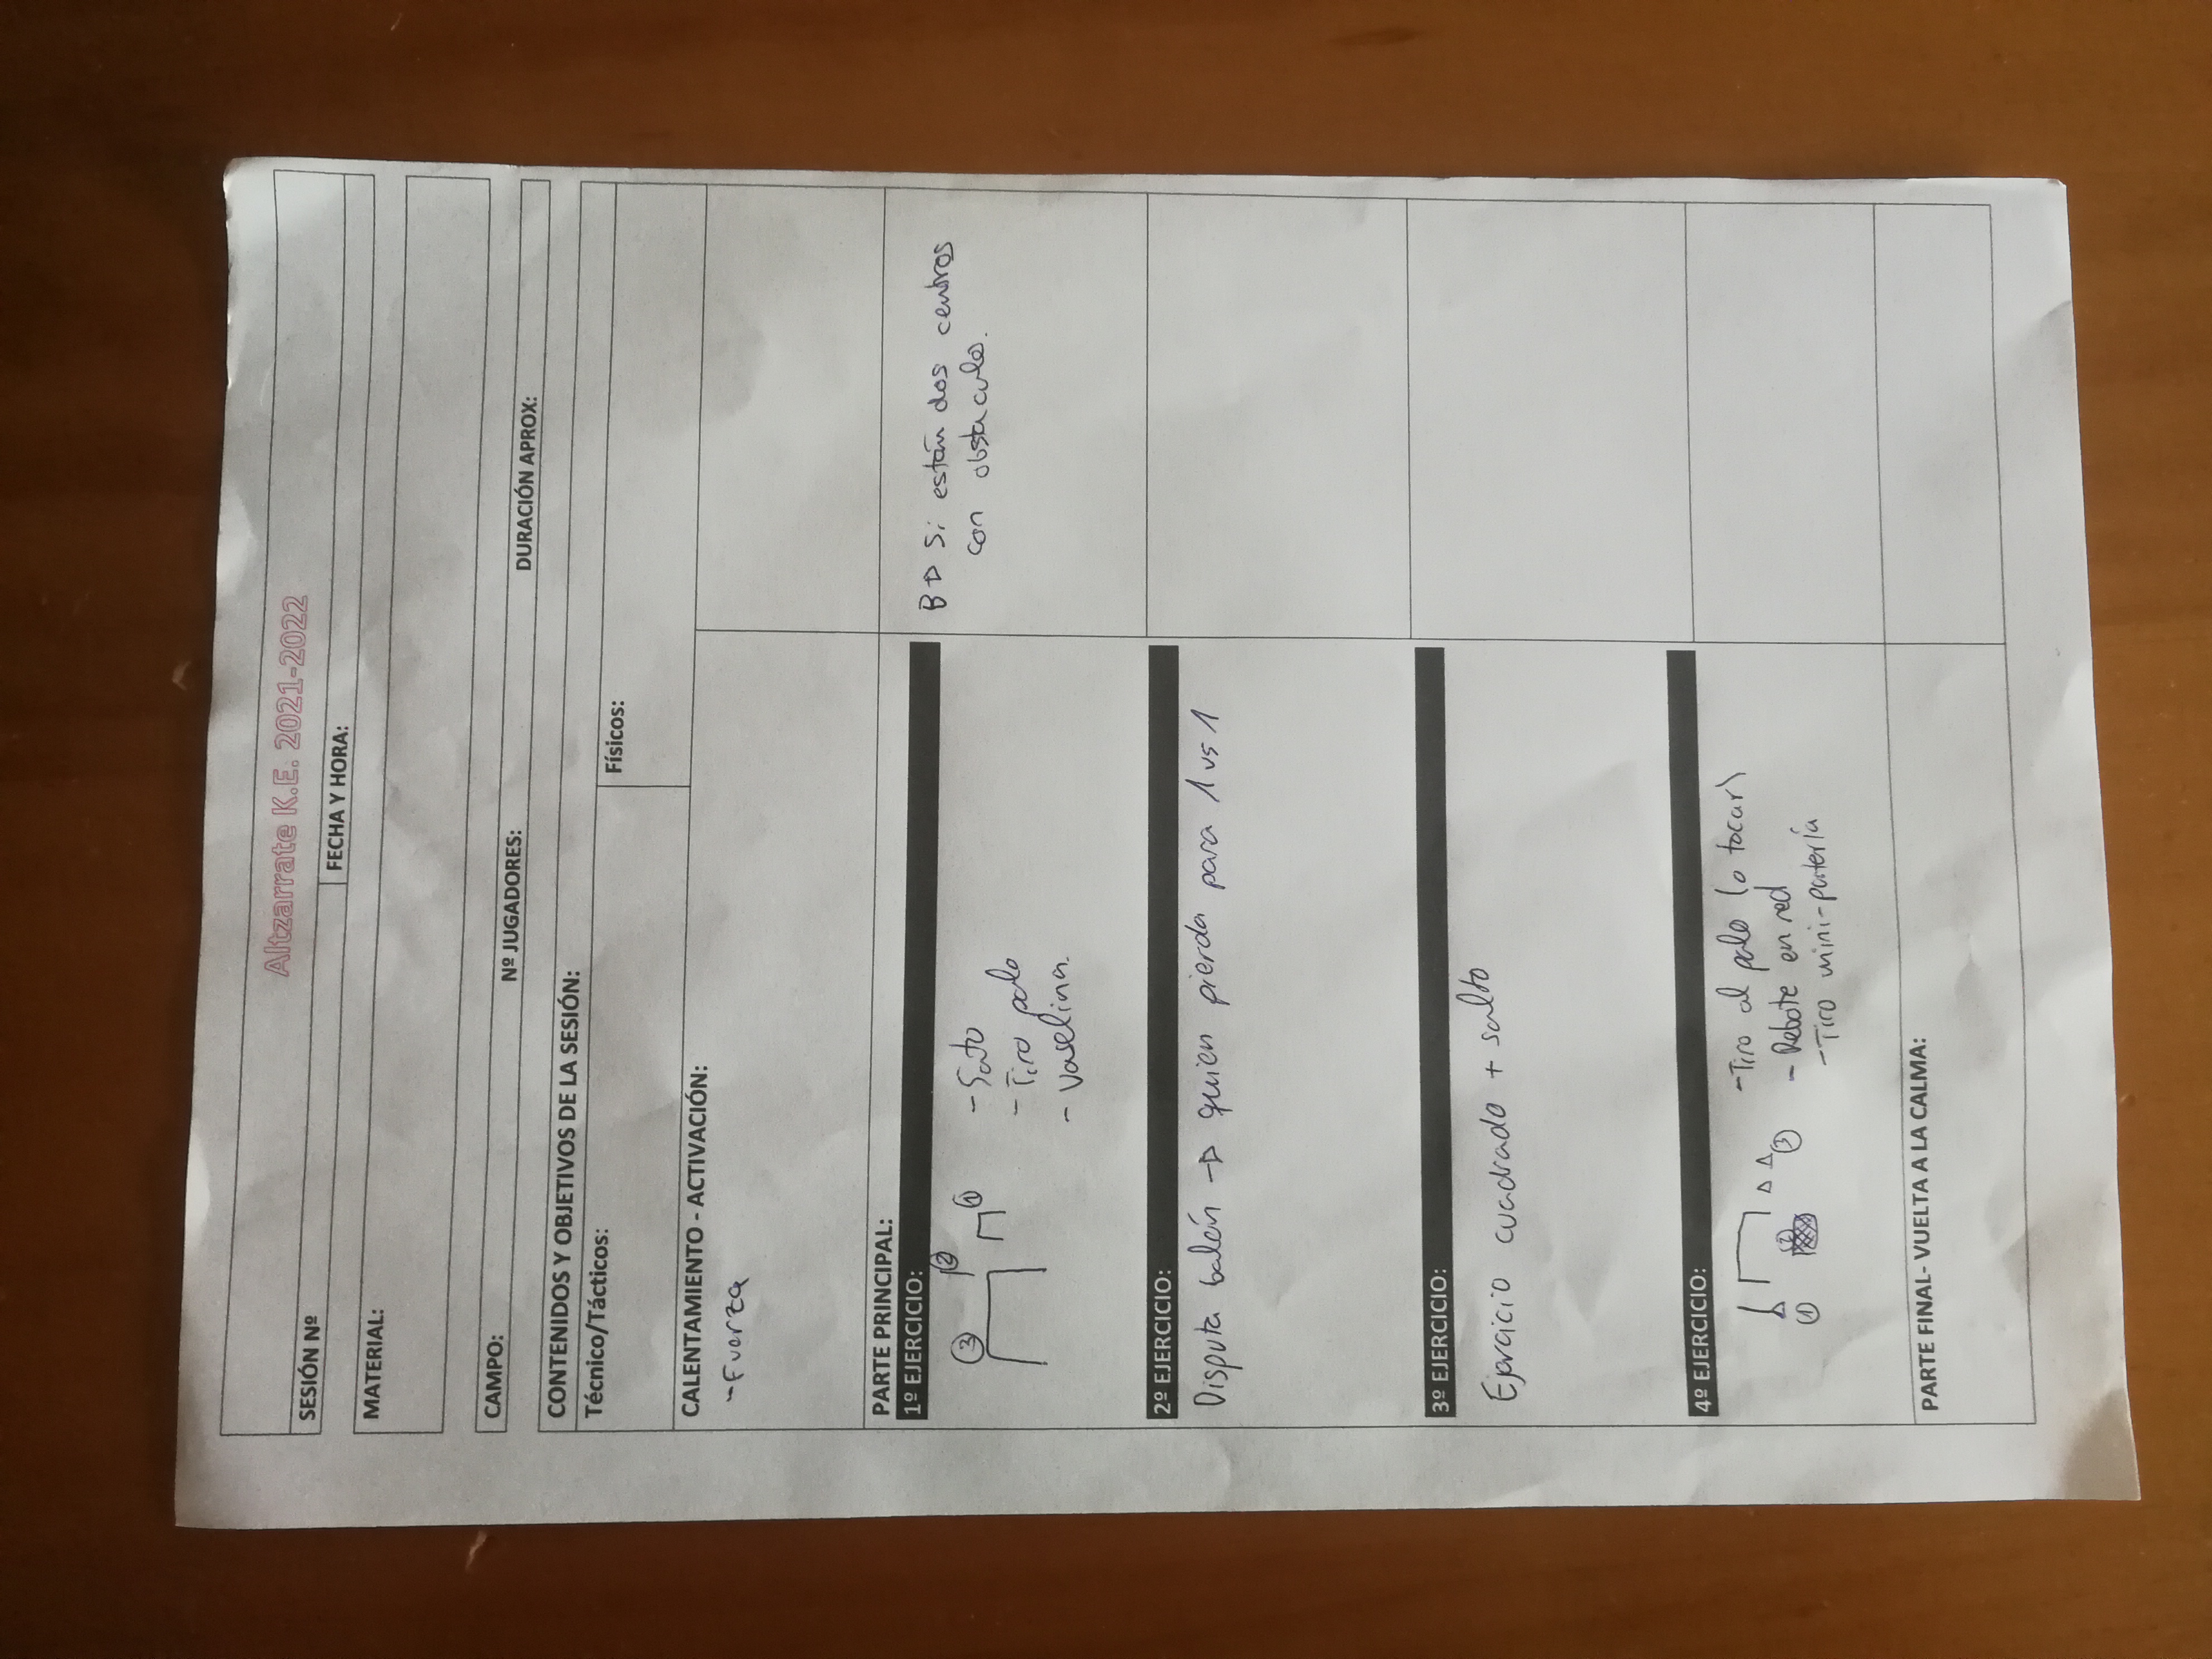 Altzarrate K.E. 2021-2022
SESIÓN Nº FECHA Y HORA:
MATERIAL:
CAMPO: Nº JUGADORES: DURACIÓN APROX:
CONTENIDOS Y OBJETIVOS DE LA SESIÓN:
Técnico/Tácticos: Físicos:
CALENTAMIENTO - ACTIVACIÓN:
- Fuerza
PARTE PRINCIPAL:
1º EJERCICIO:
B → Si están dos centros
con obstaculo.
3 2 1
- Tiro palo
- Vaselina.
2º EJERCICIO:
Disputa balón → quien pierda para 1 vs 1
3º EJERCICIO:
Ejercicio cuadrado + salto
4º EJERCICIO:
- Tiro al palo (o tocar)
- Rebote en red
- Tiro mini-portería
1 2 3
PARTE FINAL- VUELTA A LA CALMA: